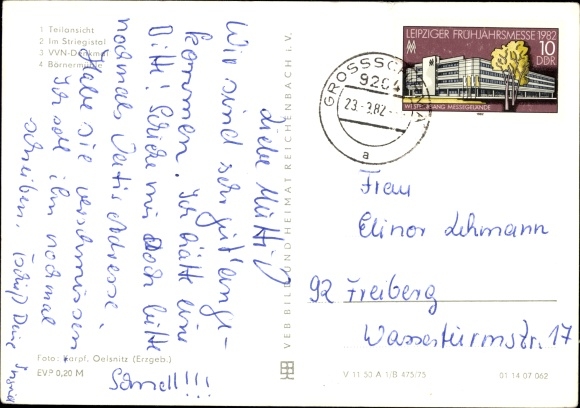 1 Teilansicht
2 Im Striegistal
3 VVN-Denkmal
4 Börnermühle
Liebe Mutti!
Wir sind sehr gut ange-
kommen. Ich hätte eine
Bitte! Schicke mir doch bitte
nochmals Adresse.
Habe sie verschmissen.
Ich soll ihm nochmal
schreiben. Tschüß Deine
Schnell!!!
Foto: Karpf, Oelsnitz (Erzgeb.)
EVP 0,20 M
VEB BILD UND HEIMAT REICHENBACH i. V.
LEIPZIGER FRÜHJAHRSMESSE 1982
10
DDR
WESTEINGANG MESSEGELÄNDE
1982
9264
a
Frau
Elinor Lehmann
92 Freiberg
Wasserturmstr. 17
V 11 53 A 1/B 475/75
01 14 07 062